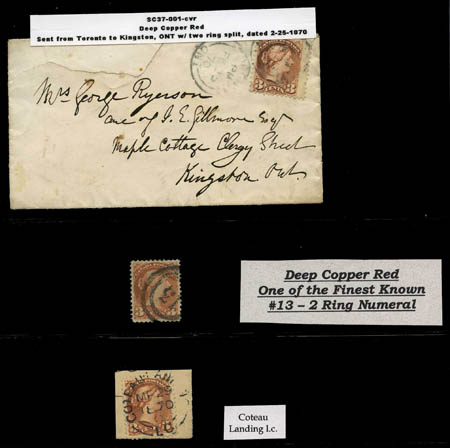 SC37-001-cvr
Deep Copper Red
Sent from Toronto to Kingston, ONT w/ two ring split, dated 2-25-1870
Mrs George Ryerson
J. E. Gillmore Esqr
Maple Cottage Clergy Street
Kingston Ont.
Deep Copper Red
One of the Finest Known
#13 – 2 Ring Numeral
Coteau
Landing l.c.